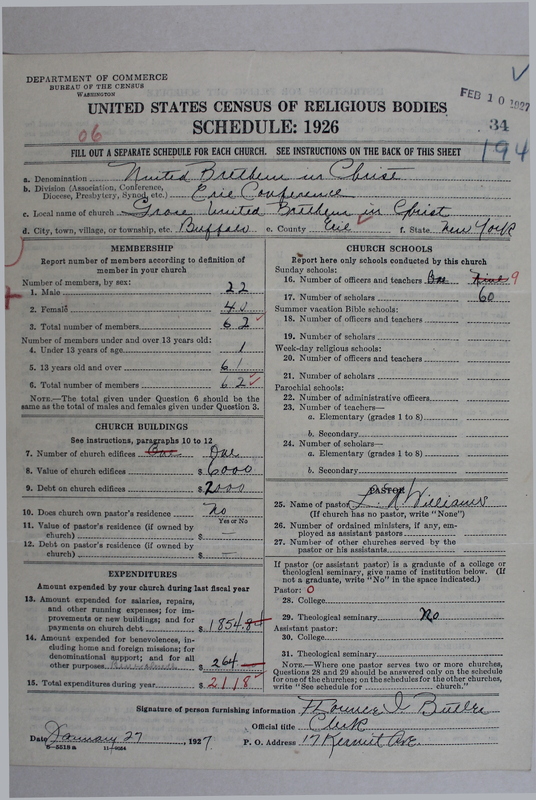 DEPARTMENT OF COMMERCE
BUREAU OF THE CENSUS
WASHINGTON
FEB 10 1927
UNITED STATES CENSUS OF RELIGIOUS BODIES
SCHEDULE: 1926
06
34
194
FILL OUT A SEPARATE SCHEDULE FOR EACH CHURCH. SEE INSTRUCTIONS ON THE BACK OF THIS SHEET
a. Denomination United Brethern in Christ
b. Division (Association, Conference, Diocese, Presbytery, Synod, etc.) Erie Conference
c. Local name of church Grace United Brethern in Christ
d. City, town, village, or township, etc. Buffalo e. County Erie f. State New York
MEMBERSHIP
Report number of members according to definition of member in your church
Number of members, by sex:
1. Male 22
2. Female 40
3. Total number of members 62
Number of members under and over 13 years old:
4. Under 13 years of age 1
5. 13 years old and over 61
6. Total number of members 62
NOTE.—The total given under Question 6 should be the same as the total of males and females given under Question 3.
CHURCH BUILDINGS
See instructions, paragraphs 10 to 12
7. Number of church edifices One
8. Value of church edifices $ 6000
9. Debt on church edifices $ 2000
10. Does church own pastor's residence? no
Yes or No
11. Value of pastor's residence (if owned by church) $ —
12. Debt on pastor's residence (if owned by church) $ —
EXPENDITURES
Amount expended by your church during last fiscal year
13. Amount expended for salaries, repairs, and other running expenses; for improvements or new buildings; and for payments on church debt $ 1854
14. Amount expended for benevolences, including home and foreign missions; for denominational support; and for all other purposes $ 264
15. Total expenditures during year $ 2118
CHURCH SCHOOLS
Report here only schools conducted by this church
Sunday schools:
16. Number of officers and teachers 9
17. Number of scholars 60
Summer vacation Bible schools:
18. Number of officers and teachers
19. Number of scholars
Week-day religious schools:
20. Number of officers and teachers
21. Number of scholars
Parochial schools:
22. Number of administrative officers
23. Number of teachers—
a. Elementary (grades 1 to 8)
b. Secondary
24. Number of scholars—
a. Elementary (grades 1 to 8)
b. Secondary
PASTOR
25. Name of pastor Williams
(If church has no pastor, write "None")
26. Number of ordained ministers, if any, employed as assistant pastors
27. Number of other churches served by the pastor or his assistants
If pastor (or assistant pastor) is a graduate of a college or theological seminary, give name of institution below. (If not a graduate, write "No" in the space indicated.)
Pastor: 0
28. College
29. Theological seminary No
Assistant pastor:
30. College
31. Theological seminary
NOTE.—Where one pastor serves two or more churches, Questions 28 and 29 should be answered only on the schedule for one of the churches; on the schedules for the other churches, write "See schedule for church."
Signature of person furnishing information Florence I Butler
Official title Clerk
Date January 27, 1927 P. O. Address 17 Kermit Ave.
8—5518a 11—9084